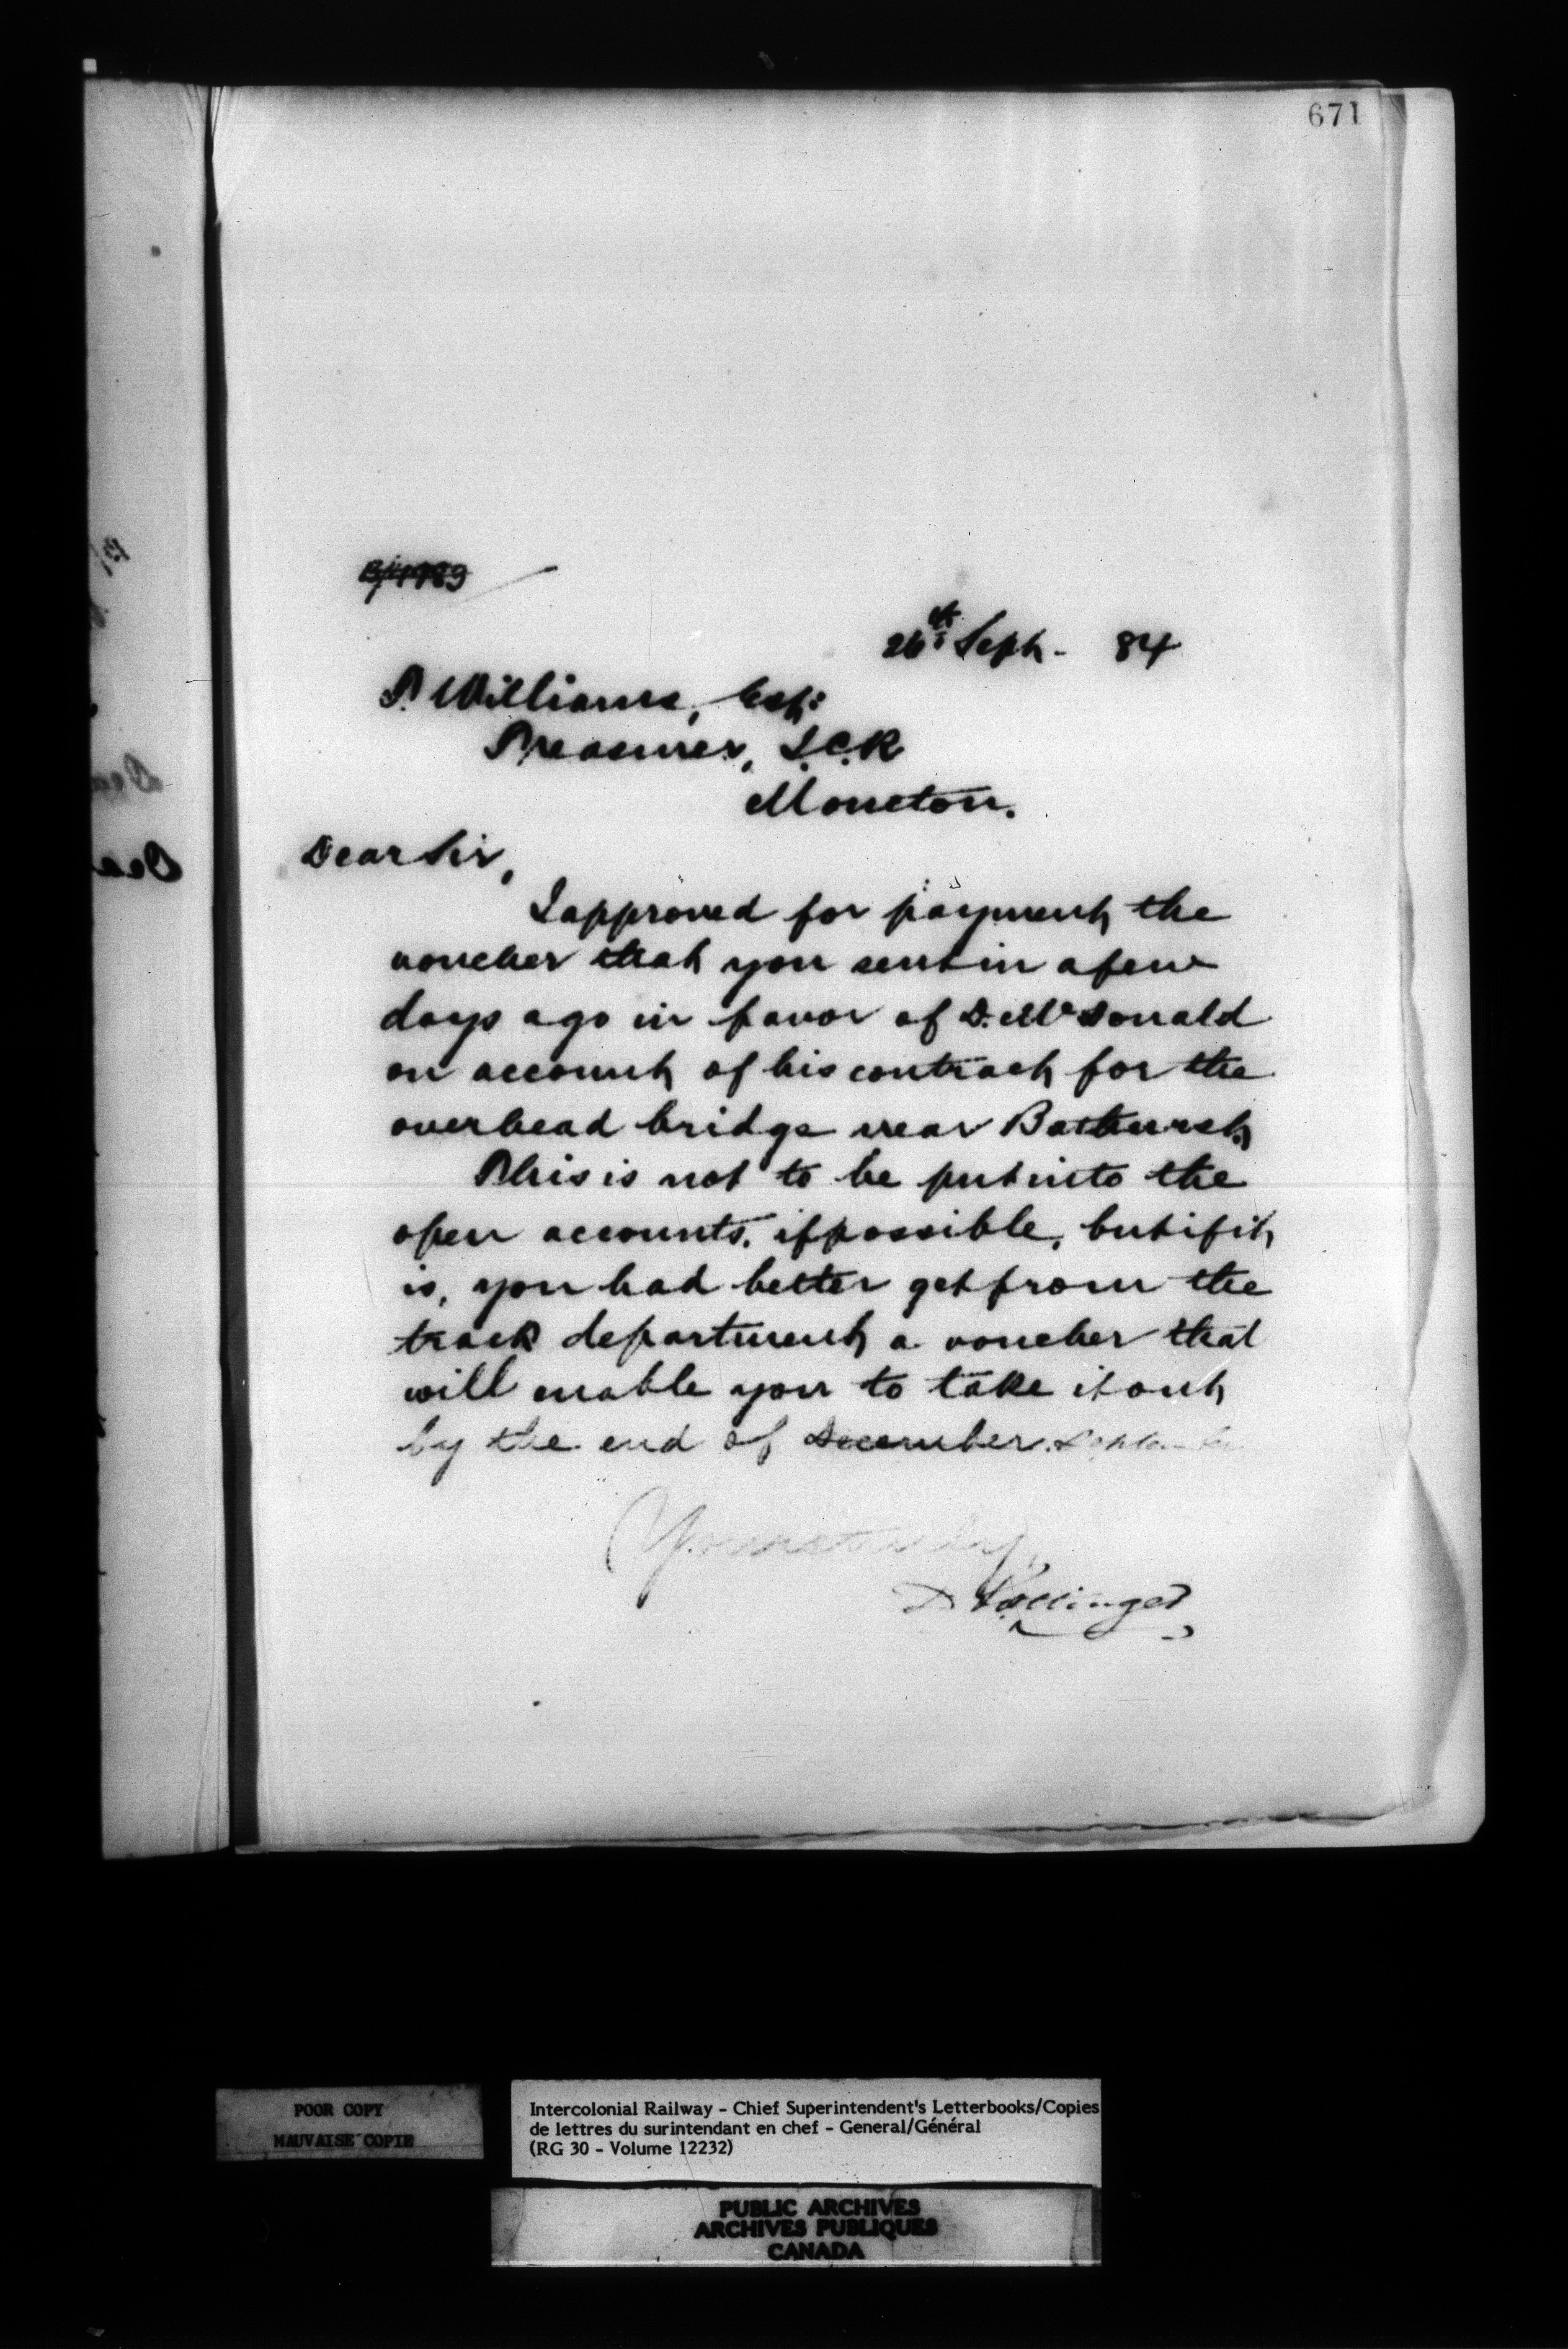 671
26th Sept - 84
T. Williams, Esq:
Treasurer, I.C.R
Moncton.
Dear Sir,
I approved for payment the
voucher that you sent in a few
days ago in favor of D. McDonald
on account of his contract for the
overhead bridge near Bathurst,
This is not to be put into the
open accounts, if possible, but if it
is, you had better get from the
track department a voucher that
will enable you to take it out
by the end of December. September
Yours truly,
D Pottinger
POOR COPY
MAUVAISE COPIE
Intercolonial Railway - Chief Superintendent's Letterbooks/Copies
de lettres du surintendant en chef - General/Général
(RG 30 - Volume 12232)
PUBLIC ARCHIVES
ARCHIVES PUBLIQUES
CANADA